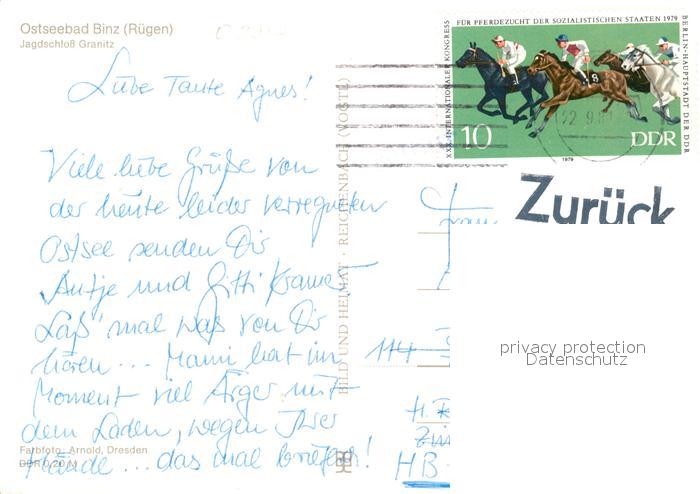 Ostseebad Binz (Rügen)
Jagdschloß Granitz
Liebe Tante Agnes!
Viele liebe Grüße von
der heute leider verregneten
Ostsee senden Dir
Antje und Gitti Kramer
Laß mal was von Dir
hören ... Mami hat im
Moment viel Ärger mit
dem Laden, wegen Ihrer
Hände ... das mal brieflich!
Farbfoto: Arnold, Dresden
DDR 0,20 M
BILD UND HEIMAT · REICHENBACH (VOGTL)
XXX. INTERNATIONALER KONGRESS
FÜR PFERDEZUCHT DER SOZIALISTISCHEN STAATEN 1979
BERLIN-HAUPTSTADT DER DDR
8
10
DDR
1979
Zurück
Frau
114
H.
HB
privacy protection
Datenschutz